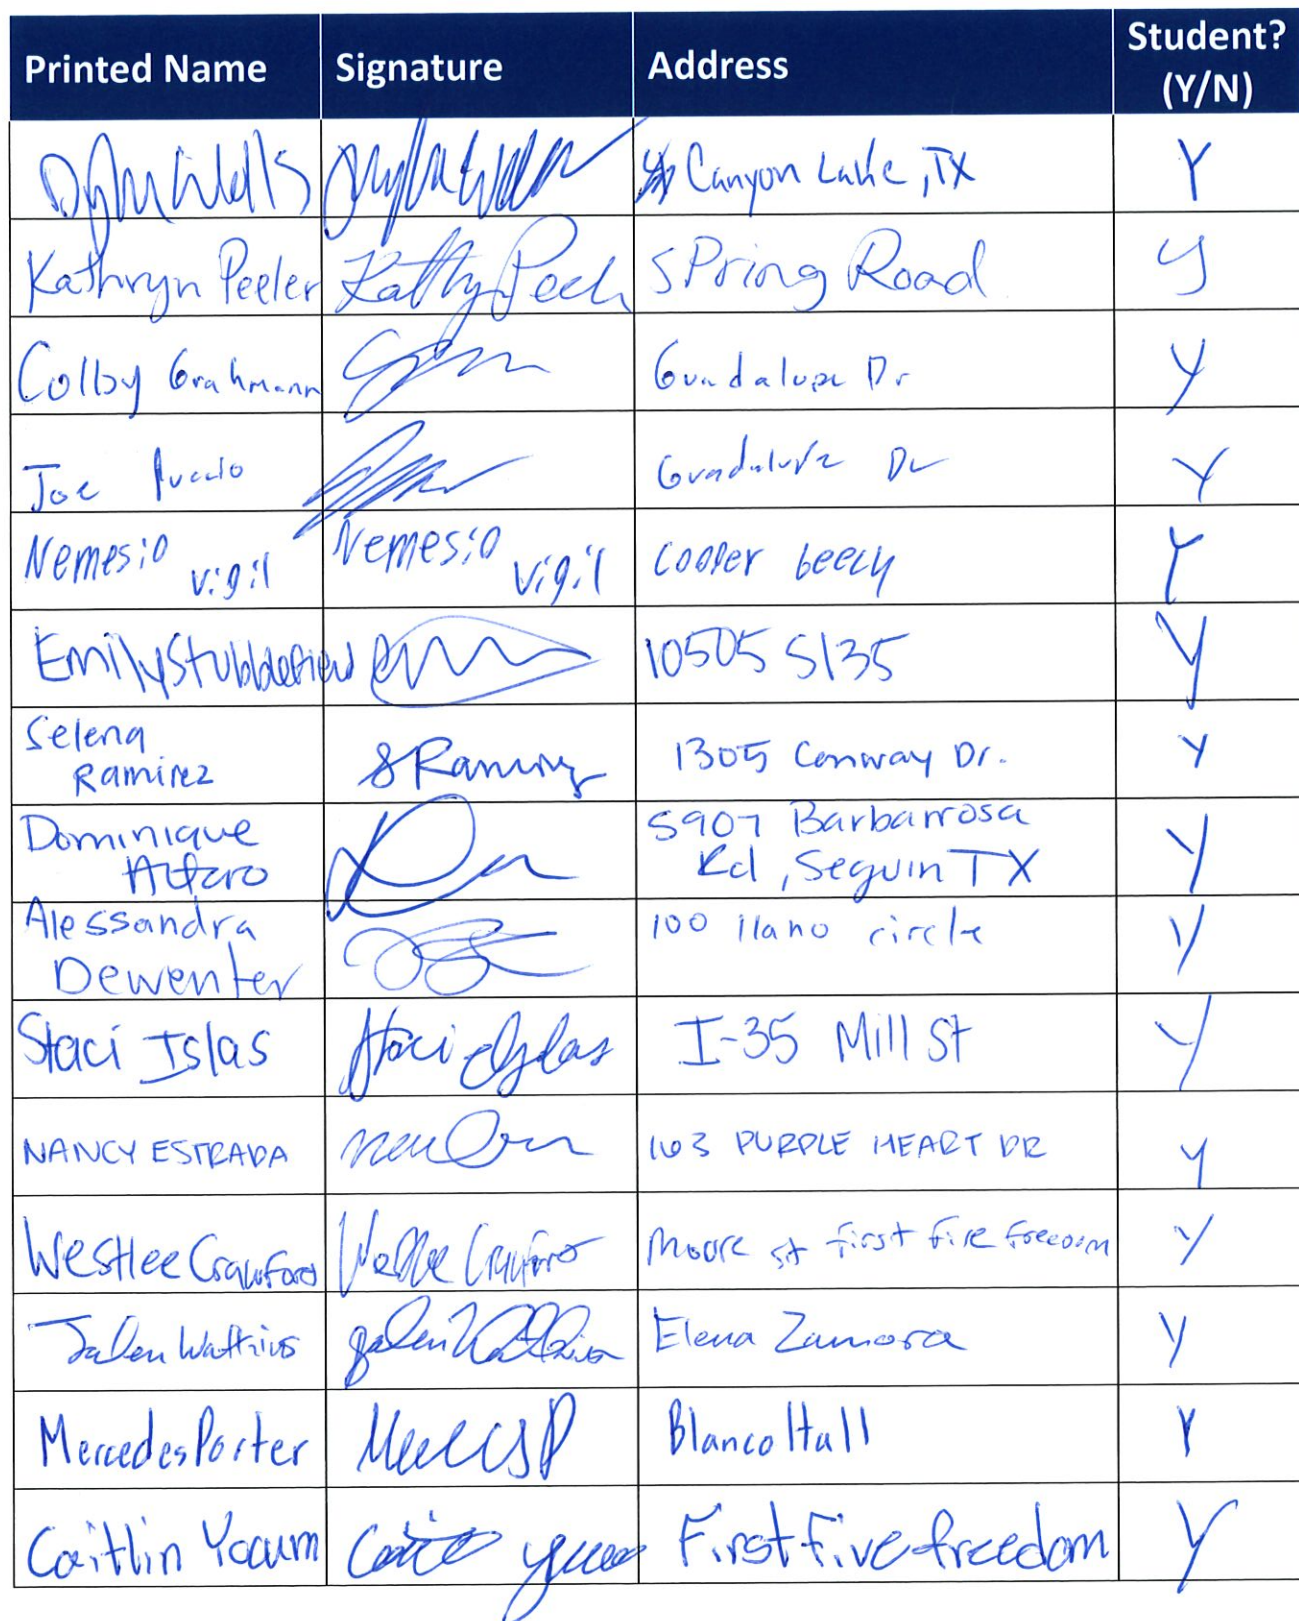 Printed Name Signature Address Student? (Y/N)
Wells Canyon Lake, TX Y
Kathryn Peeler Kathy Peel SPring Road y
Colby Grahmann Guadalupe Dr Y
Joe Guadalupe Dr Y
Nemesio vigil Nemesio vigil cooper beech Y
Emily Stubblefield 10505 S I35 Y
Selena
Ramirez S Ramirez 1305 Conway Dr. Y
Dominique
Alfaro 5907 Barbarrosa
Rd, Seguin TX Y
Alessandra
Dewenter 100 llano circle Y
Staci Islas Staci Islas I-35 Mill St Y
NANCY ESTRADA 163 PURPLE HEART DR Y
Westlee Crawford Westlee Crawford Moore st first five freedom Y
Jalen Watkins Jalen Watkins Elena Zamora Y
Mercedes Porter Blanco Hall Y
Caitlin Yocum First five freedom Y